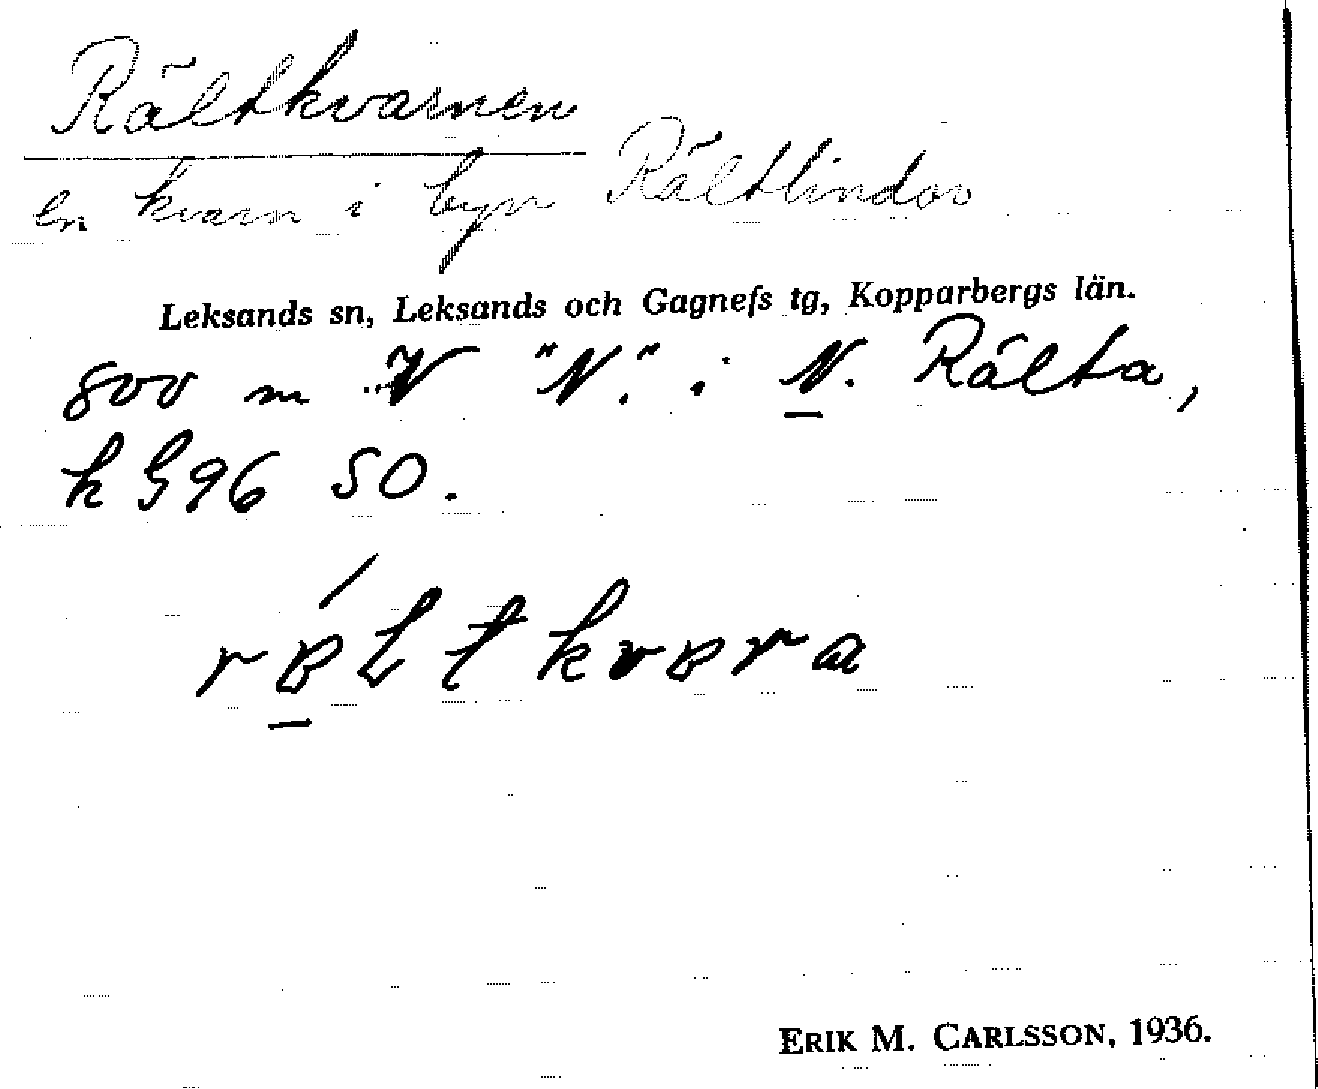 Rältkvarnen
en kvarn i byn Rältlindor
Leksands sn, Leksands och Gagnefs tg, Kopparbergs län.
800 m V "N." i N. Rälta,
k G96 SO.
ERIK M. CARLSSON, 1936.